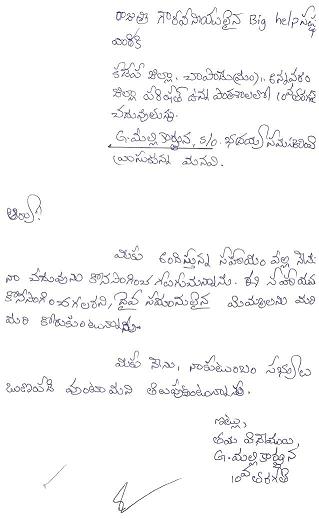 గౌరవనీయులైన Big help సంస్థ
వారికి
కడప జిల్లా, చాపాడు(మం),
జిల్లా పరిషత్ ఉన్నత పాఠశాలలో 10వ తరగతి
చదువుతున్న
G. మల్లికార్జున, S/o.
వ్రాసుకున్న మనవి.
ఆర్యా!
మీరు అందిస్తున్న సహాయం వల్ల నేను
నా చదువును కొనసాగించ గలుగుచున్నాను. ఈ సహాయం
కొనసాగించగలరని, దైవ సమానులైన మిమ్మాలను మరీ
మరీ కోరుకుంటున్నాను.
మీకు నేను, నా కుటుంబం సభ్యులు
ఋణపడి వుంటామని తెలుపుకుంటున్నాను.
ఇట్లు,
తమ విధేయుడు,
G. మల్లికార్జున
10వ తరగతి